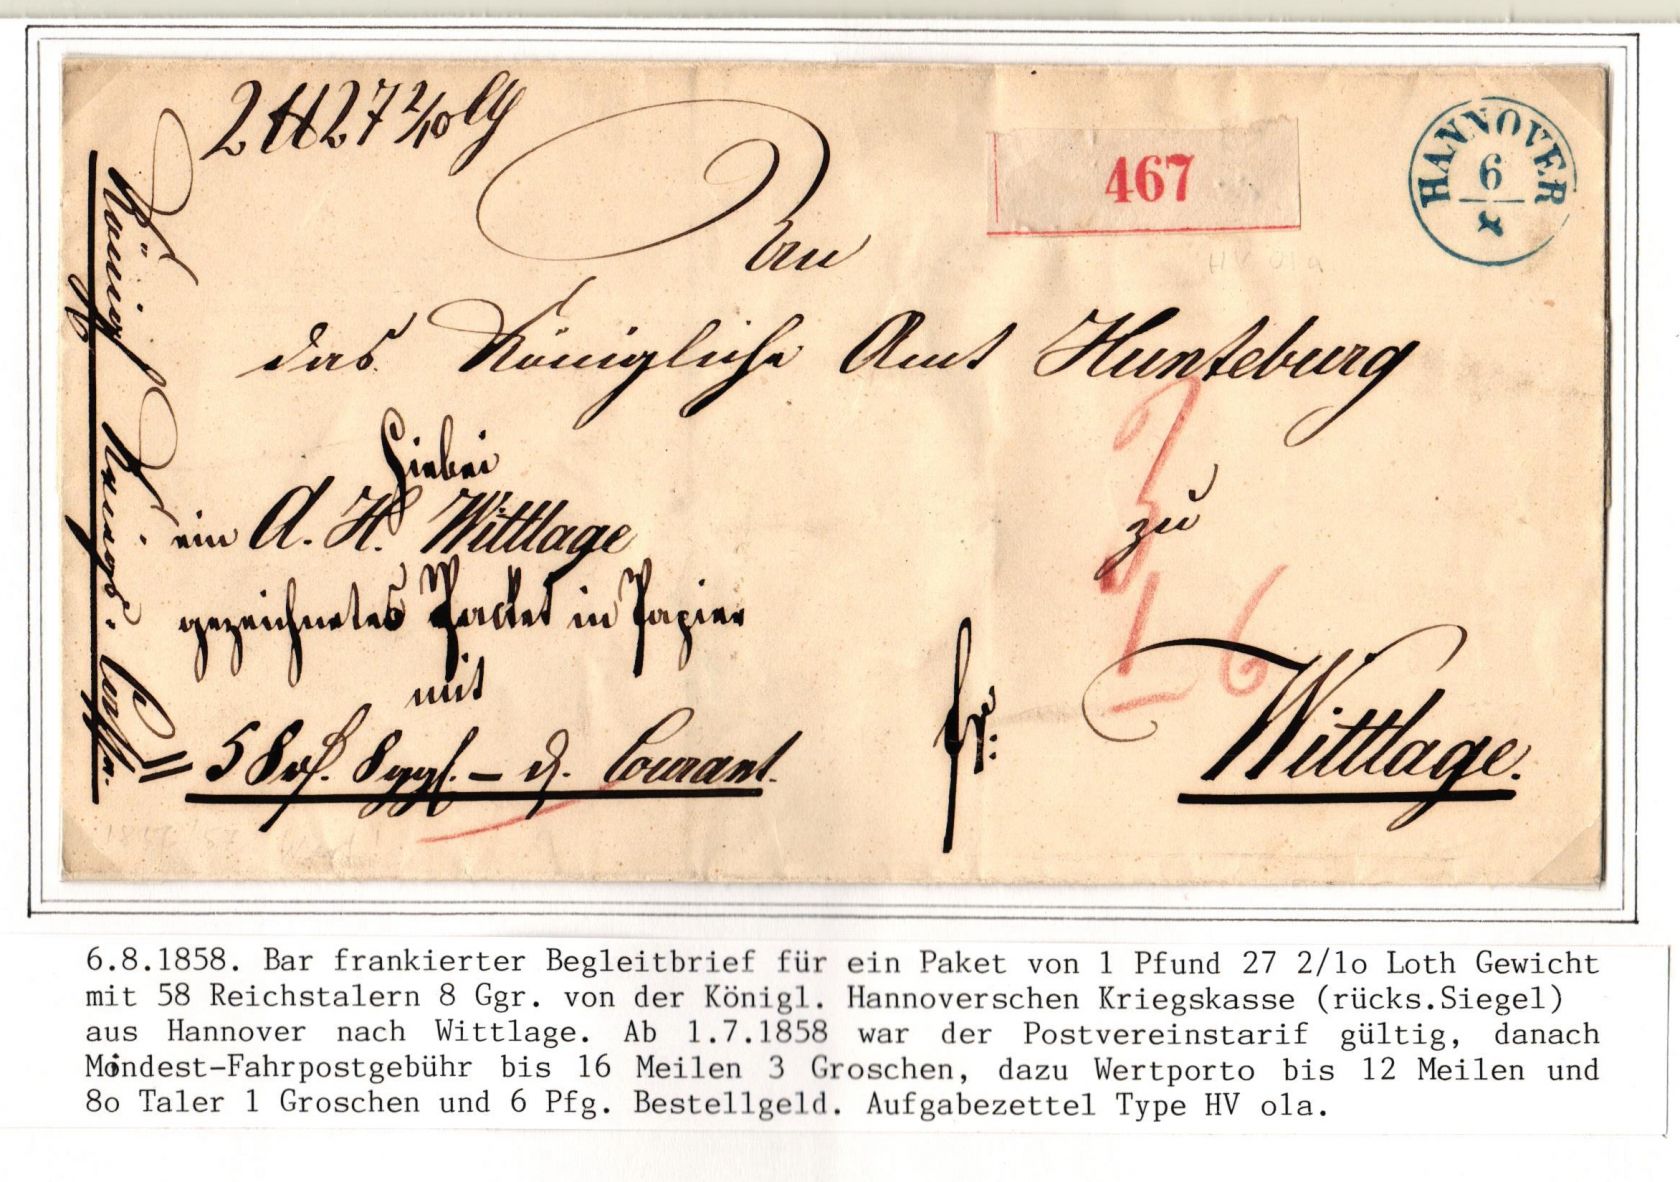 2 ℔ 27 2/10 Lth
An
467
HANNOVER
6
8
das Königliche Amt Hunteburg
Hiebei
ein A. H. Wittlage
gezeichnetes Packet in Papier
mit
58 Rℓ. 8 ggr. – d. Courant.
zu
Wittlage.
fr.
3
1 6
Königl. Kriegs-Cassa.
HV 01a
6.8.1858. Bar frankierter Begleitbrief für ein Paket von 1 Pfund 27 2/1o Loth Gewicht
mit 58 Reichstalern 8 Ggr. von der Königl. Hannoverschen Kriegskasse (rücks.Siegel)
aus Hannover nach Wittlage. Ab 1.7.1858 war der Postvereinstarif gültig, danach
Mindest-Fahrpostgebühr bis 16 Meilen 3 Groschen, dazu Wertporto bis 12 Meilen und
8o Taler 1 Groschen und 6 Pfg. Bestellgeld. Aufgabezettel Type HV o1a.